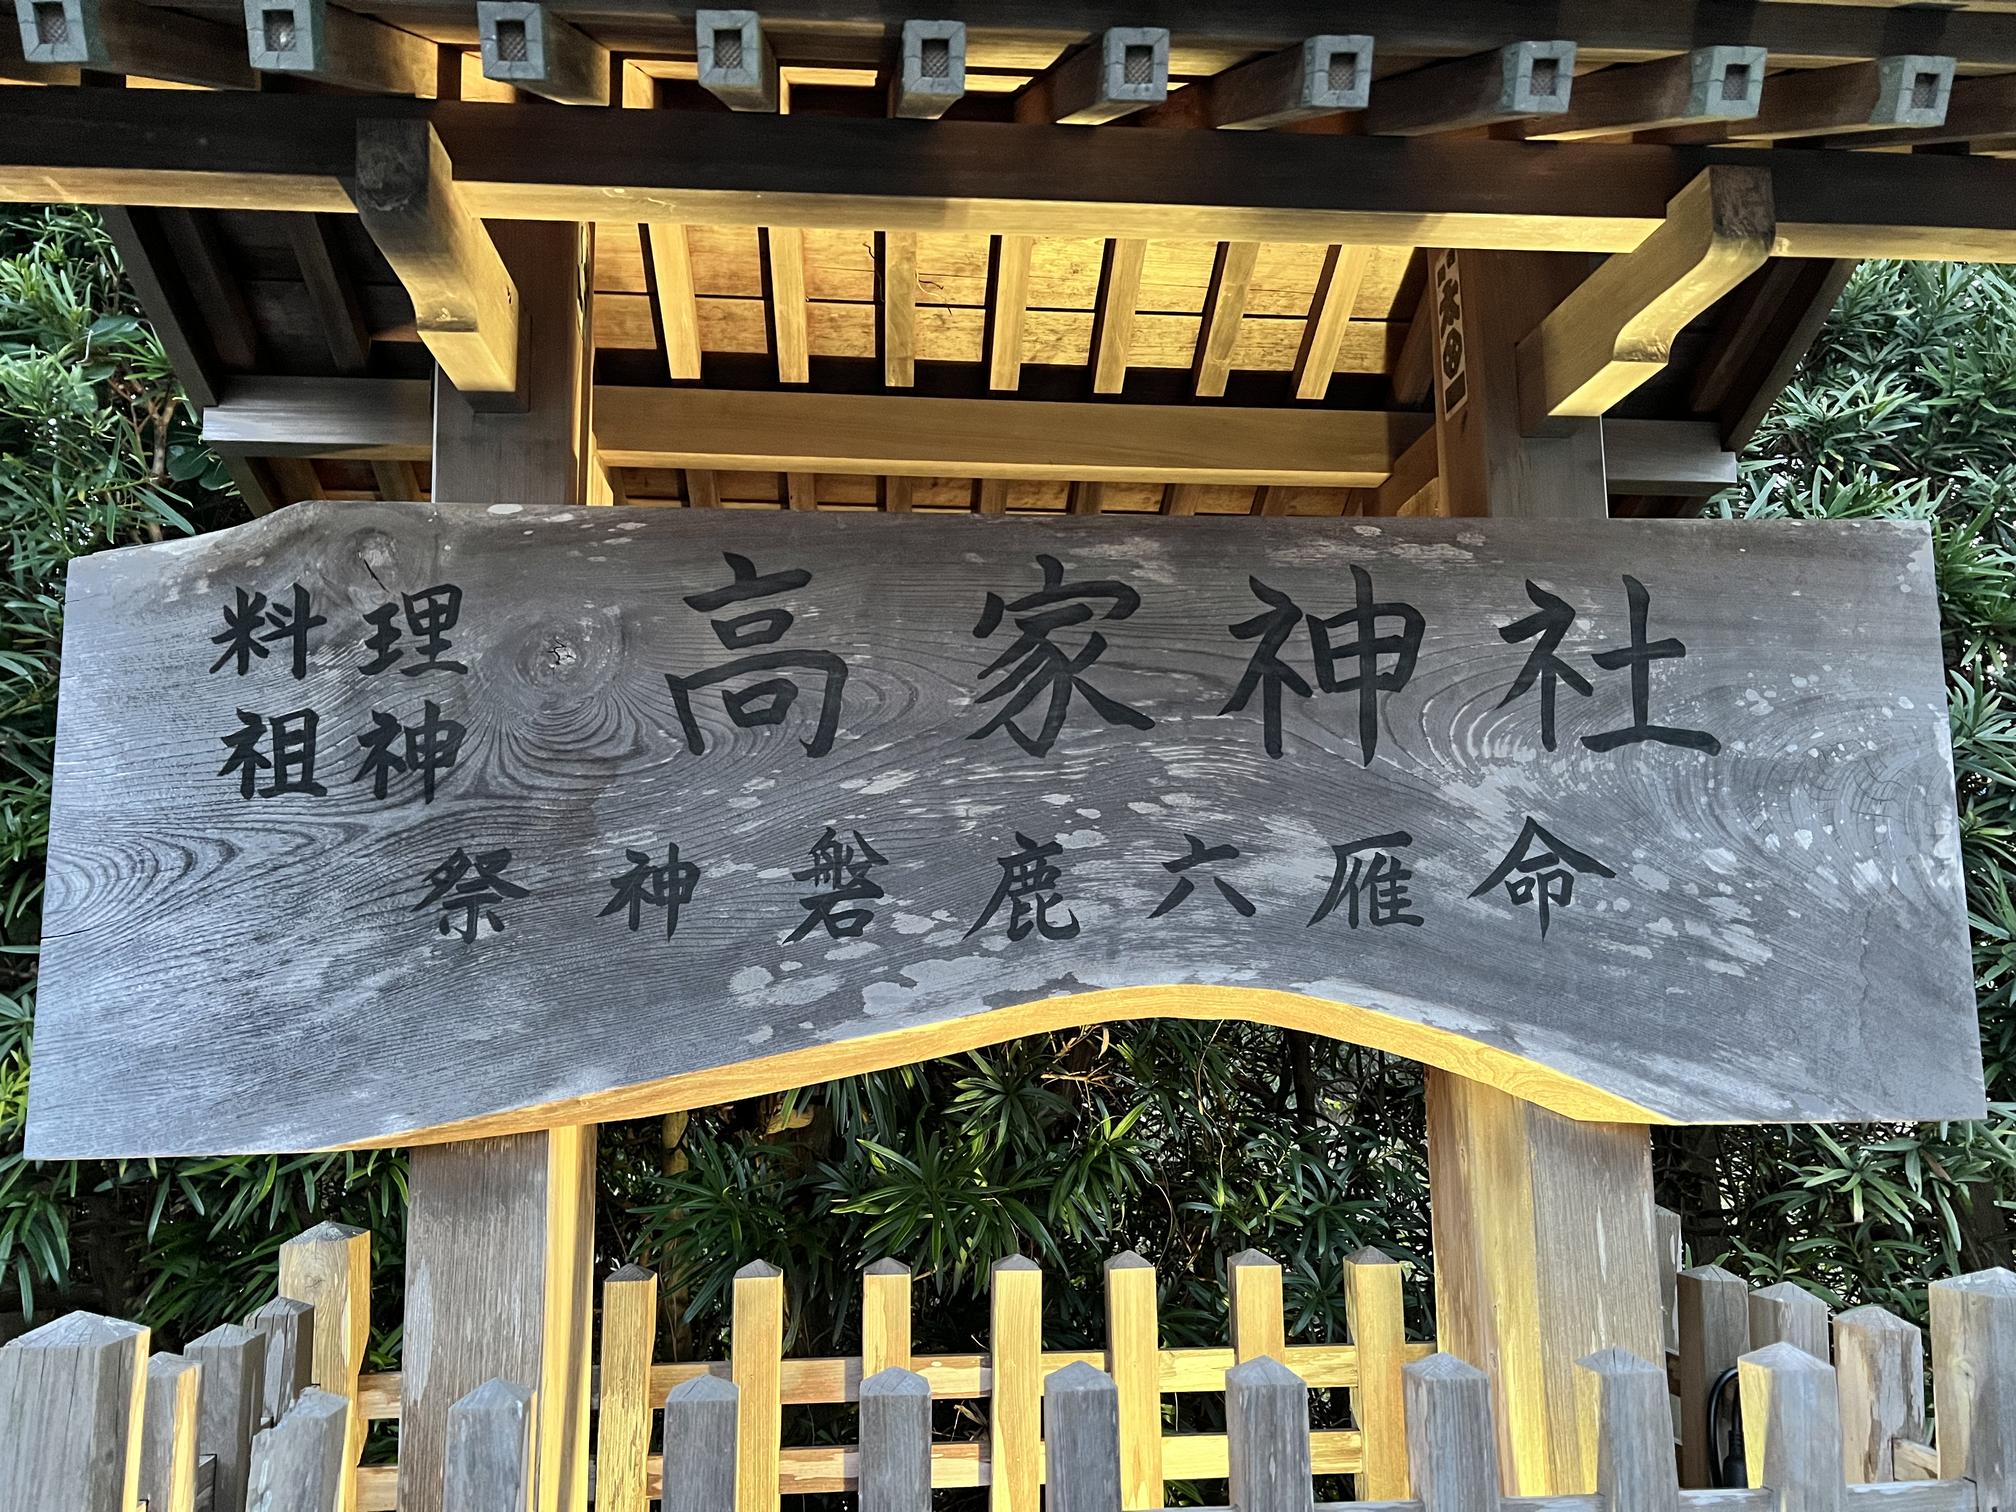 料理
祖神
高家神社
祭神磐鹿六雁命